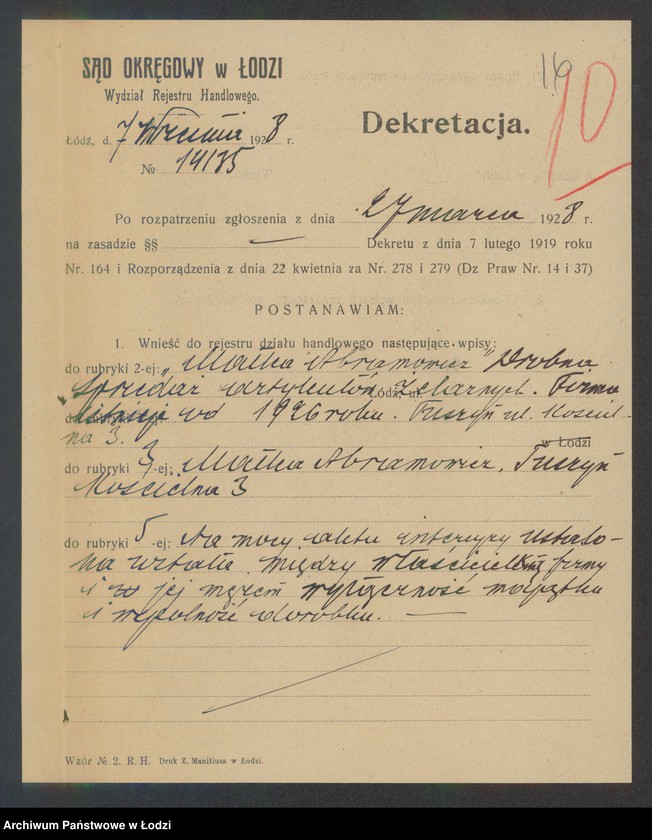 SĄD OKRĘGOWY w ŁODZI
Wydział Rejestru Handlowego.
16
10
Łódź, d. 7 Września 1928 r.
№ 14135
Dekretacja.
Po rozpatrzeniu zgłoszenia z dnia 27 marca 1928 r.
na zasadzie §§ — Dekretu z dnia 7 lutego 1919 roku
Nr. 164 i Rozporządzenia z dnia 22 kwietnia za Nr. 278 i 279 (Dz Praw Nr. 14 i 37)
POSTANAWIAM:
1. Wnieść do rejestru działu handlowego następujące wpisy:
do rubryki 2-ej: „Małka Abramowicz" Drobna
sprzedaż artykułów żelaznych. Firma
istnieje od 1926 roku. Tuszyn ul. Kościel-
na 3.
w Łodzi
do rubryki 3-ej: Małka Abramowicz, Tuszyn
Kościelna 3
do rubryki 5-ej: Na mocy aktu intercyzy ustalo-
na została między właścicielką firmy
i jej mężem wyłączność majątku
i wspólność dorobku. —
Wzór № 2. R. H. Druk Z. Manitiusa w Łodzi.
Archiwum Państwowe w Łodzi